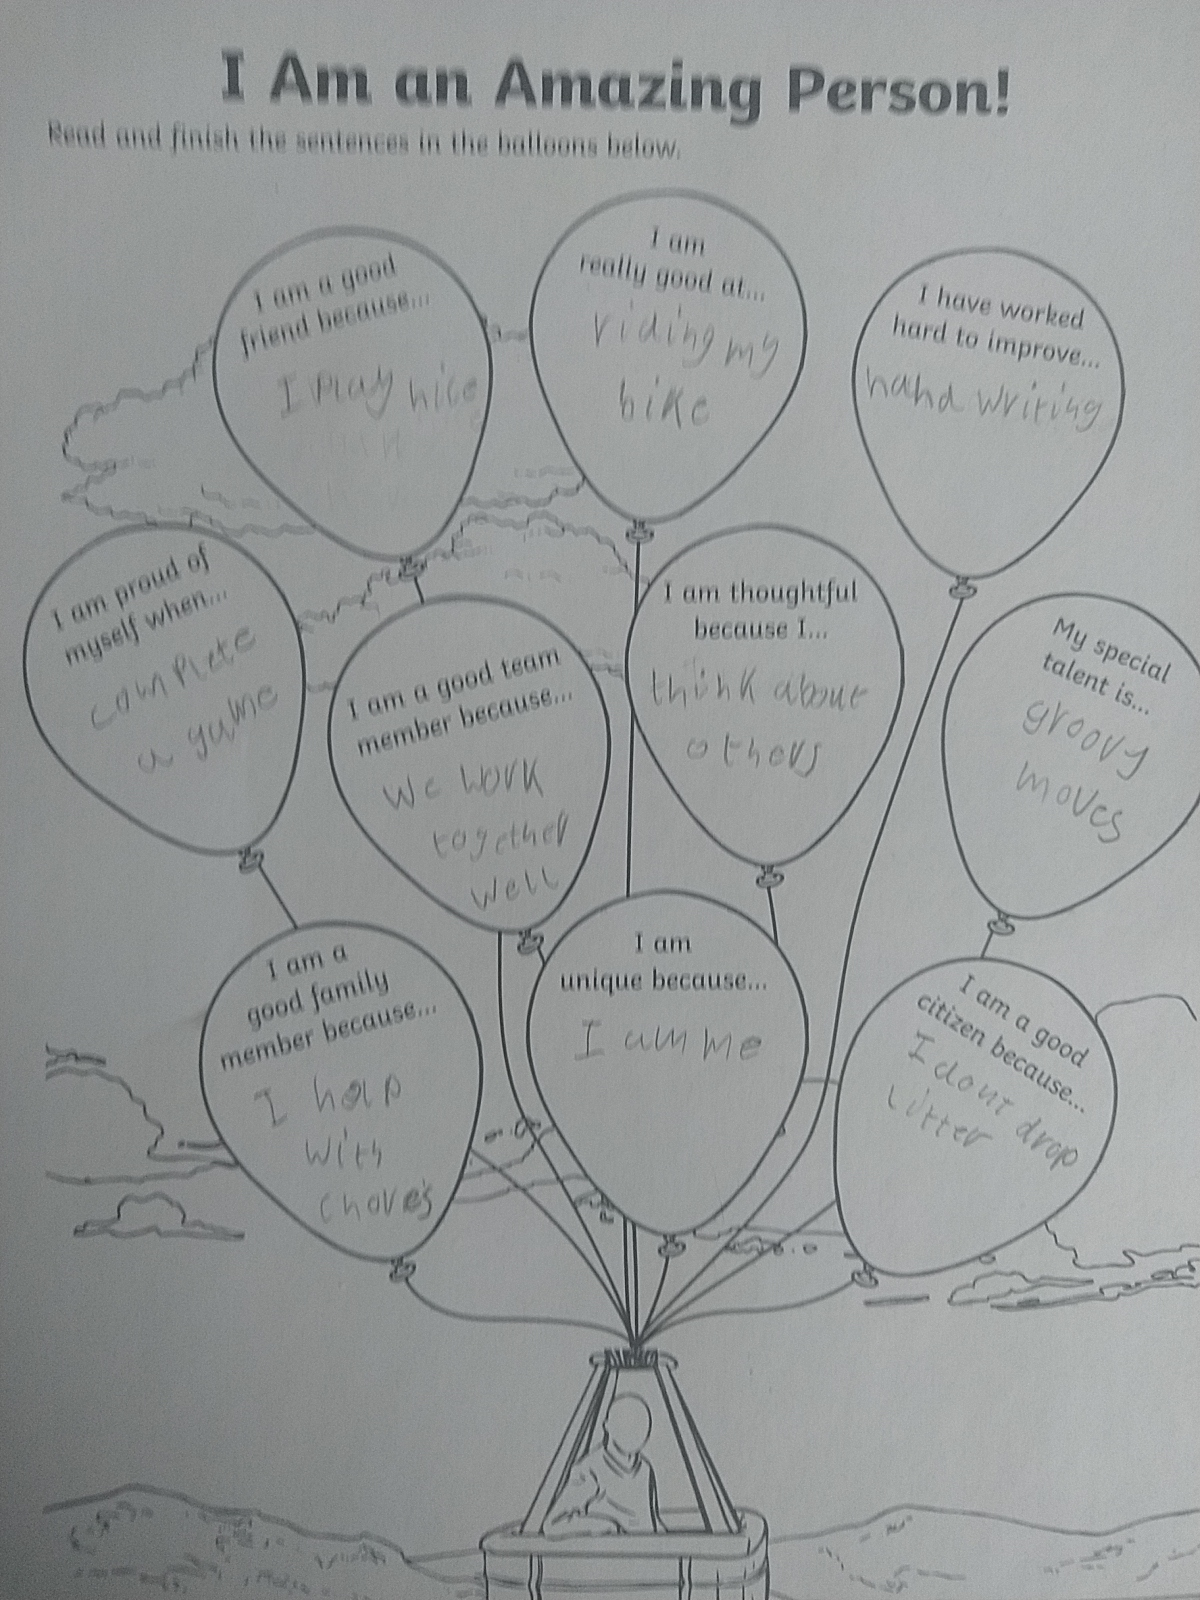 I Am an Amazing Person!
Read and finish the sentences in the balloons below.
I am a good
friend because...
I play nice
I am
really good at...
riding my
bike
I have worked
hard to improve...
hand writing
I am proud of
myself when...
complete
a game
I am a good team
member because...
We work
together
well
I am thoughtful
because I...
think about
others
My special
talent is...
groovy
moves
I am a
good family
member because...
I help
with
chores
I am
unique because...
I am me
I am a good
citizen because...
I dont drop
Litter